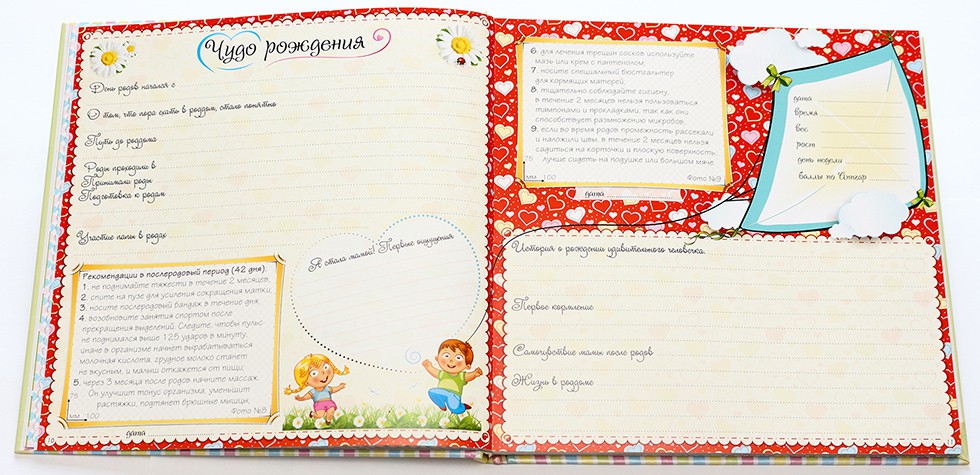 Чудо рождения
День родов начался с
О том, что пора ехать в роддом, стало понятно
Путь до роддома
Роды проходили в
Принимали роды
Подготовка к родам
Участие папы в родах
Я стала мамой! Первые ощущения
Рекомендации в послеродовый период (42 дня):
1. не поднимайте тяжести в течение 2 месяцев;
2. спите на пузе для усиления сокращения матки;
3. носите послеродовый бандаж в течение дня;
4. возобновите занятия спортом после
прекращения выделений. Следите, чтобы пульс
не поднимался выше 125 ударов в минуту,
иначе в организме начнет вырабатываться
молочная кислота, грудное молоко станет
не вкусным, и малыш откажется от пищи;
5. через 3 месяца после родов начните массаж.
Он улучшит тонус организма, уменьшит
растяжки, подтянет брюшные мышцы;
75
мм 100
Фото №8
дата
10
6. для лечения трещин сосков используйте
мазь или крем с пантенолом;
7. носите специальный бюстгальтер
для кормящих матерей;
8. тщательно соблюдайте гигиену,
в течение 2 месяцев нельзя пользоваться
тампонами и прокладками, так как они
способствует размножению микробов;
9. если во время родов промежность рассекали
и наложили швы, в течение 2 месяцев нельзя
садиться на корточки и плоскую поверхность,
лучше сидеть на подушке или большом мяче.
75
мм 100
Фото №9
дата
дата
время
вес
рост
день недели
баллы по Апгар
История о рождении удивительного человечка.
Первое кормление
Самочувствие мамы после родов
Жизнь в роддоме
11